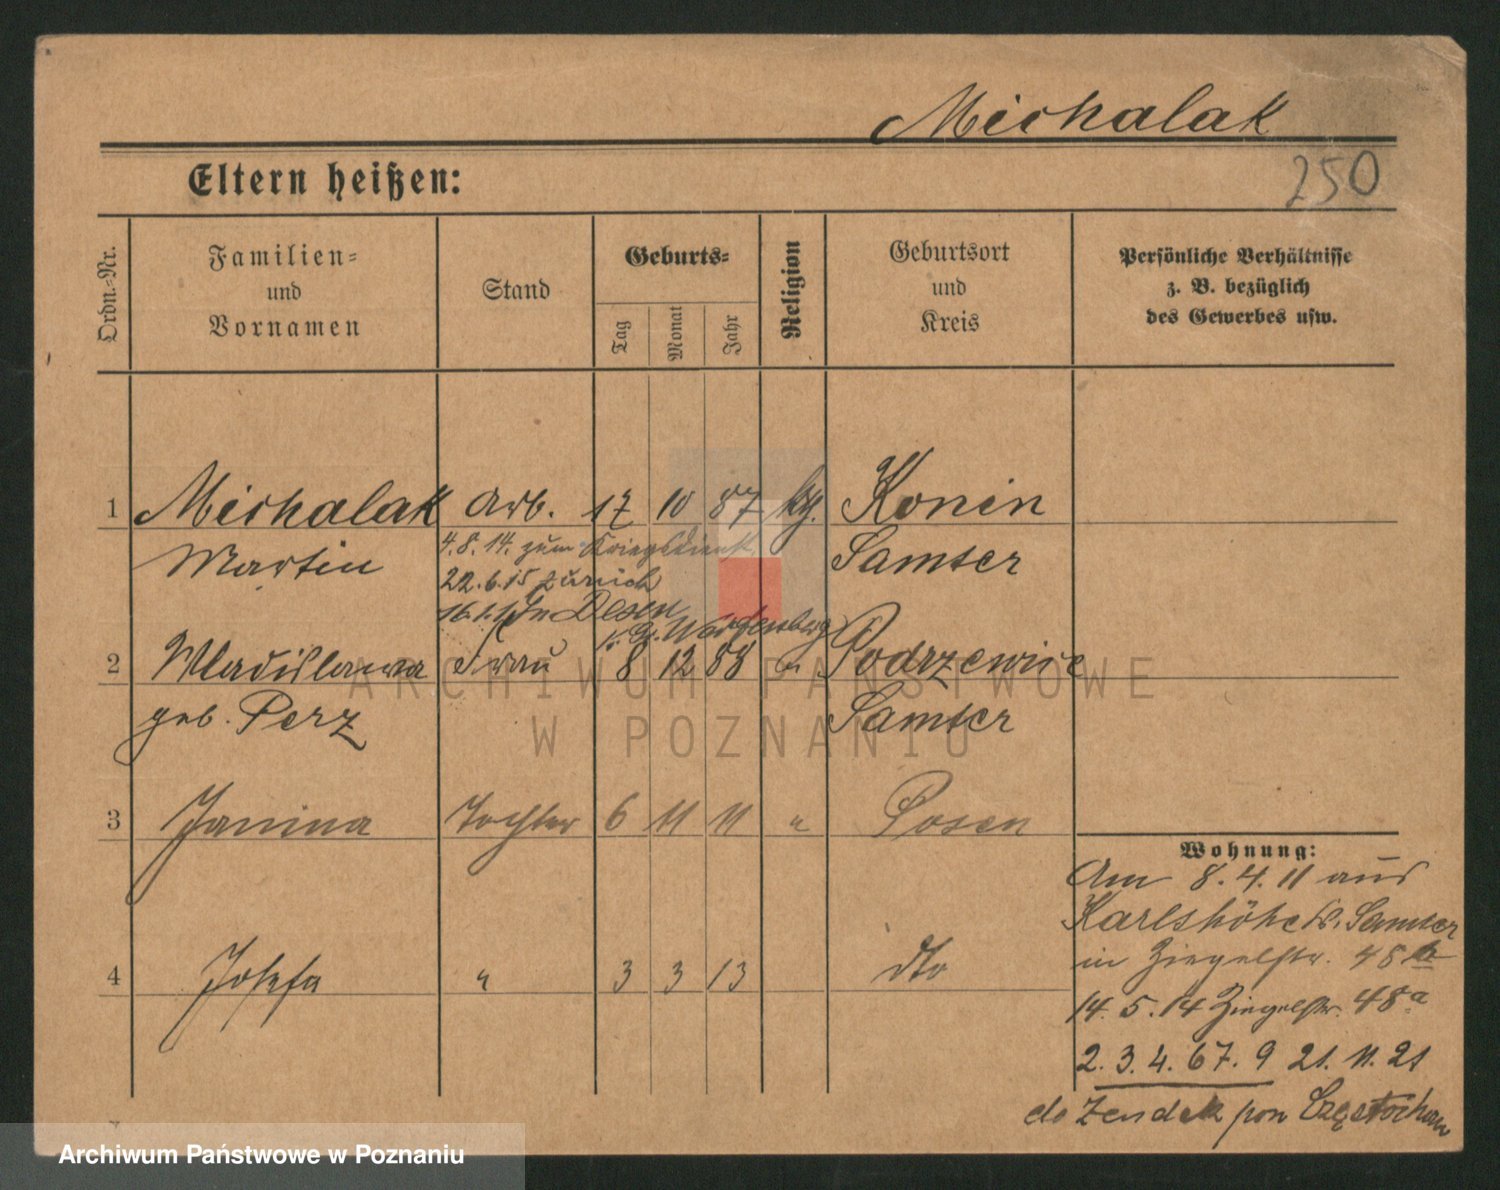 Michalak
250
Eltern heißen:
Ordn.-Nr.
Familien- und Vornamen
Stand
Geburts-
Tag
Monat
Jahr
Religion
Geburtsort und Kreis
Persönliche Verhältnisse
z. B. bezüglich
des Gewerbes usw.
1 Michalak Arb. 17 10 87 kg. Konin
Martin 4.8.14. zum Kriegsdienst Samter
22.6.15 zurück
in Posen
Wartenberg
2 Wladislawa Frau 8 12 88 " Podrzewice
geb. Perz Samter
3 Janina Tochter 6 11 11 " Posen
Wohnung:
Am 8.4.11 aus
Karlshöhe Kr. Samter
in Ziegelstr. 48
4 Josefa " 3 3 13 dto
14.5.14 Ziegelstr. 48a
2. 3. 4. 6 7. 9 21. 11. 21
do Zendek pon
ARCHIWUM PAŃSTWOWE
W POZNANIU
Archiwum Państwowe w Poznaniu